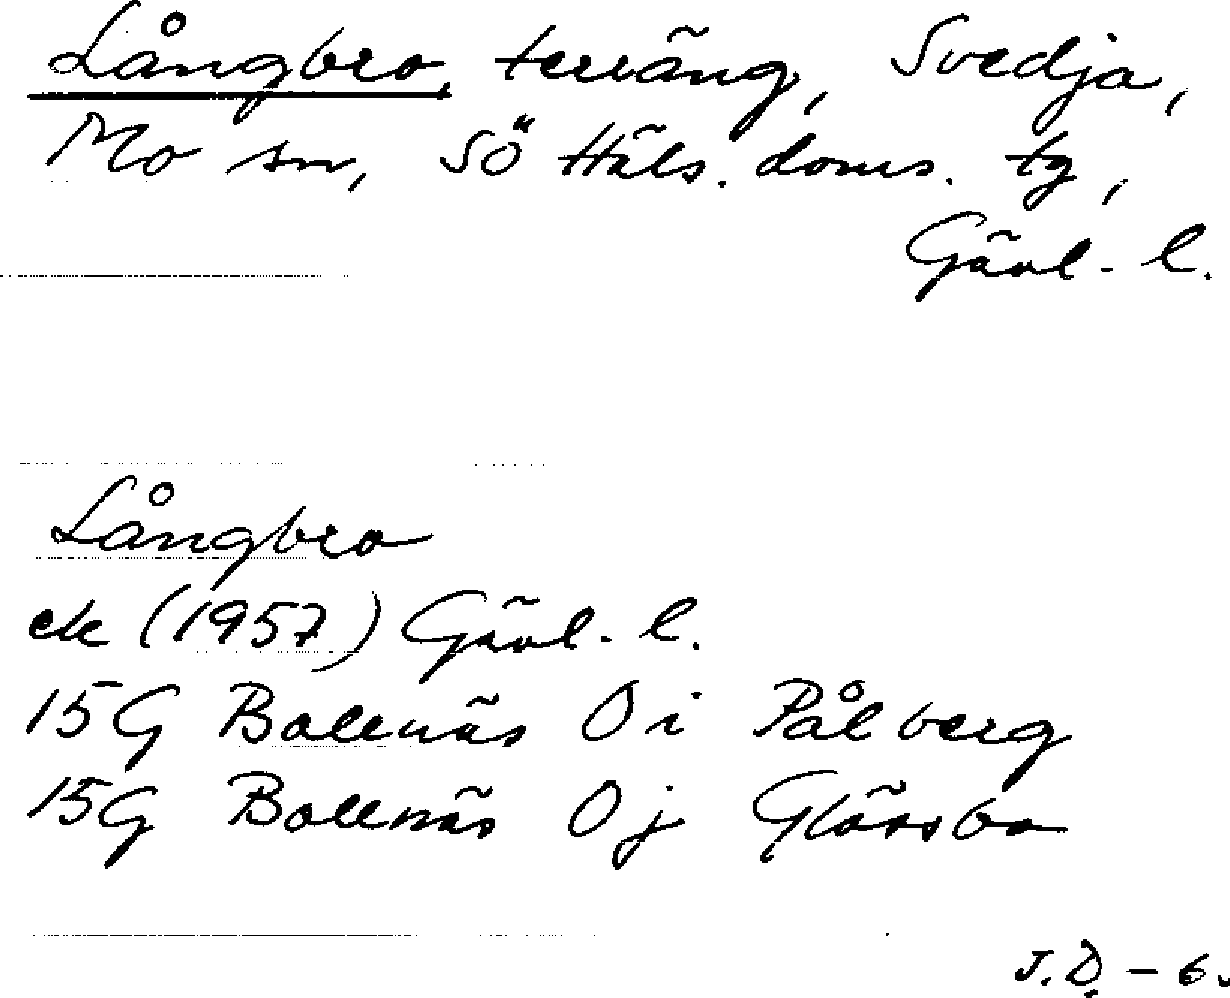 Långbro, terräng, Svedja,
Mo sn, SÖ Häls. doms. tg,
Gävl. l.
Långbro
ek (1957) Gävl. l.
15G Bollnäs 0 i Pålberg
15G Bollnäs 0 j Glössbo
J.D. - 6.